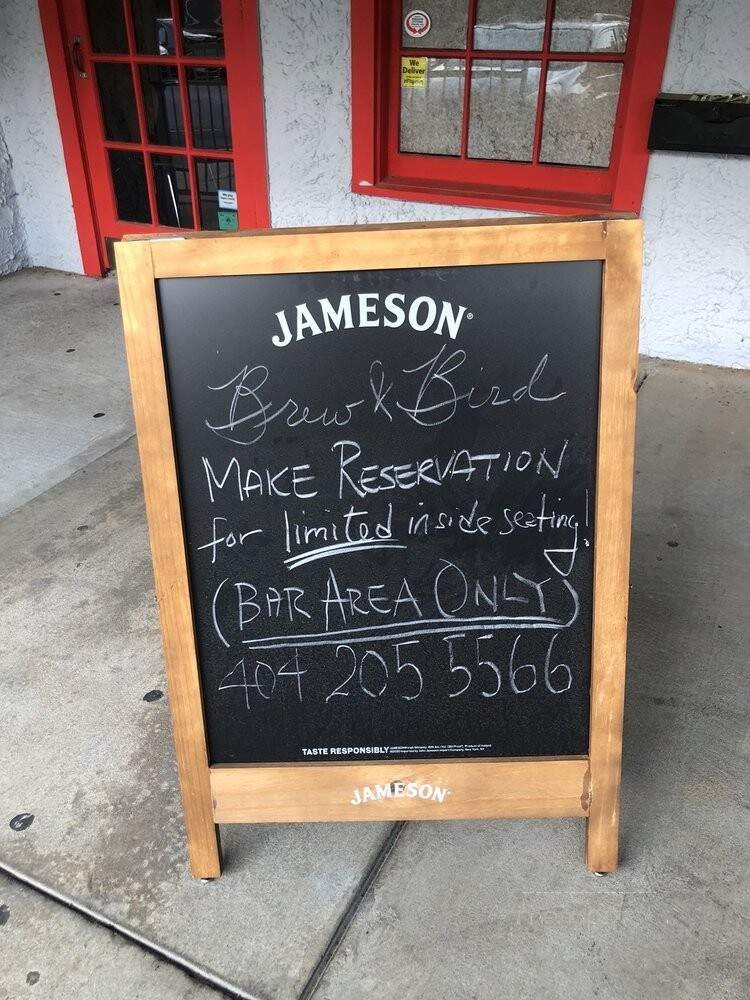 We
Deliver
JAMESON®
Brew & Bird
MAKE RESERVATION
for limited inside seating!
(BAR AREA ONLY)
404 205 5566
TASTE RESPONSIBLY
JAMESON